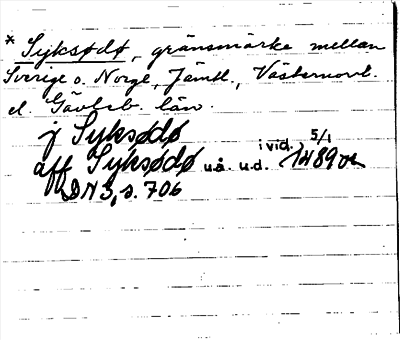 * Syksødø, gränsmärke mellan
Sverige o. Norge, Jämtl., Västernorrl.
el. Gävleb. län.
j Syksødø
aff Syksødø u.å. u.d. i vid. 5/1 1489 or
DN 3, s. 706